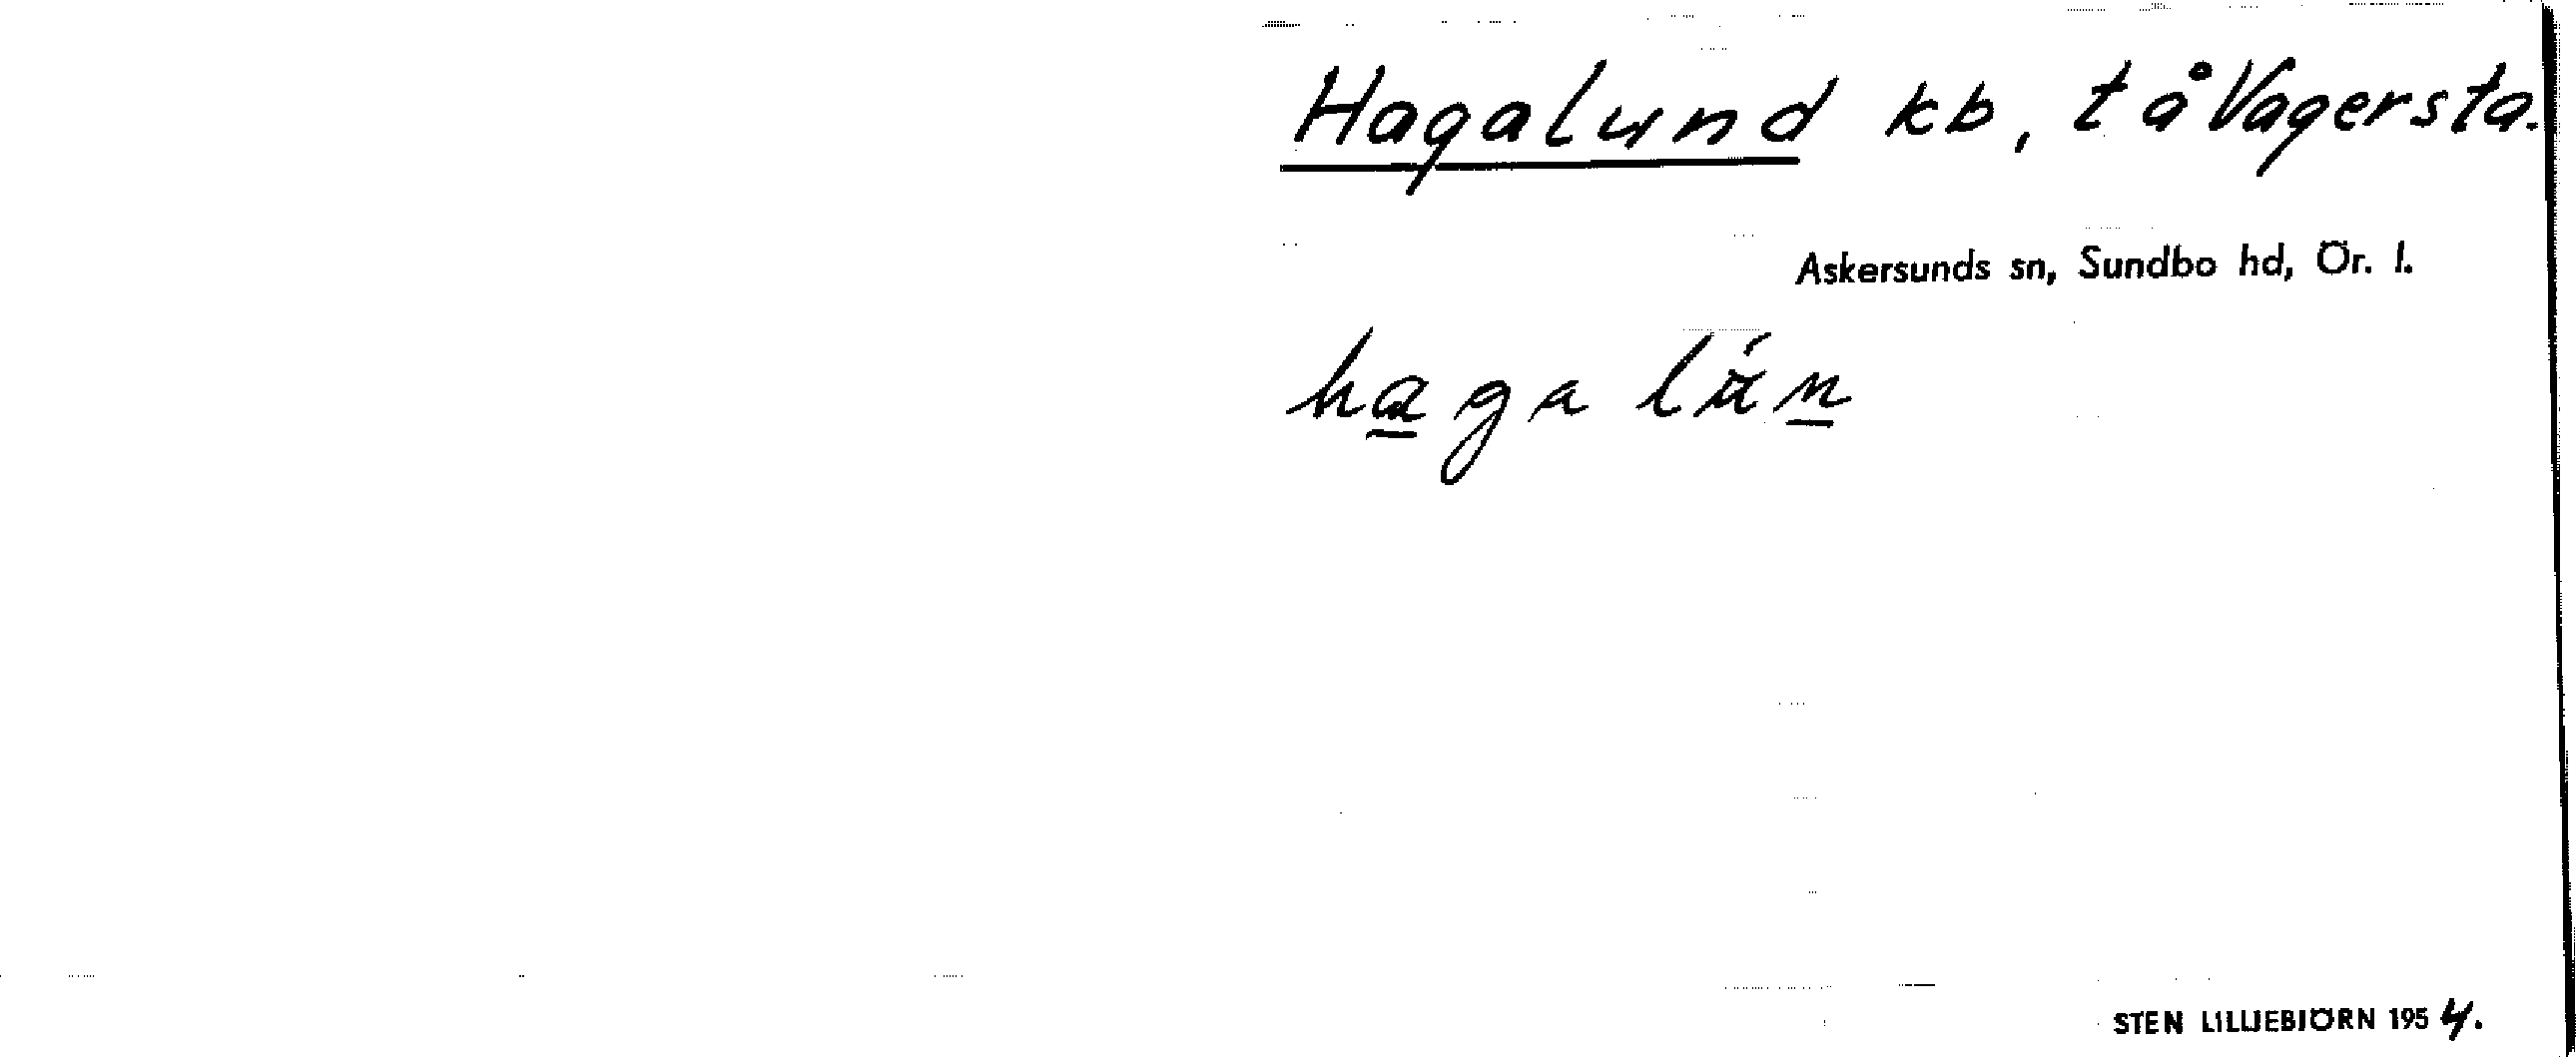 Hagalund kb, t å Vagersta.
Askersunds sn, Sundbo hd, Ör. l.
STEN LILLIEBJÖRN 1954.